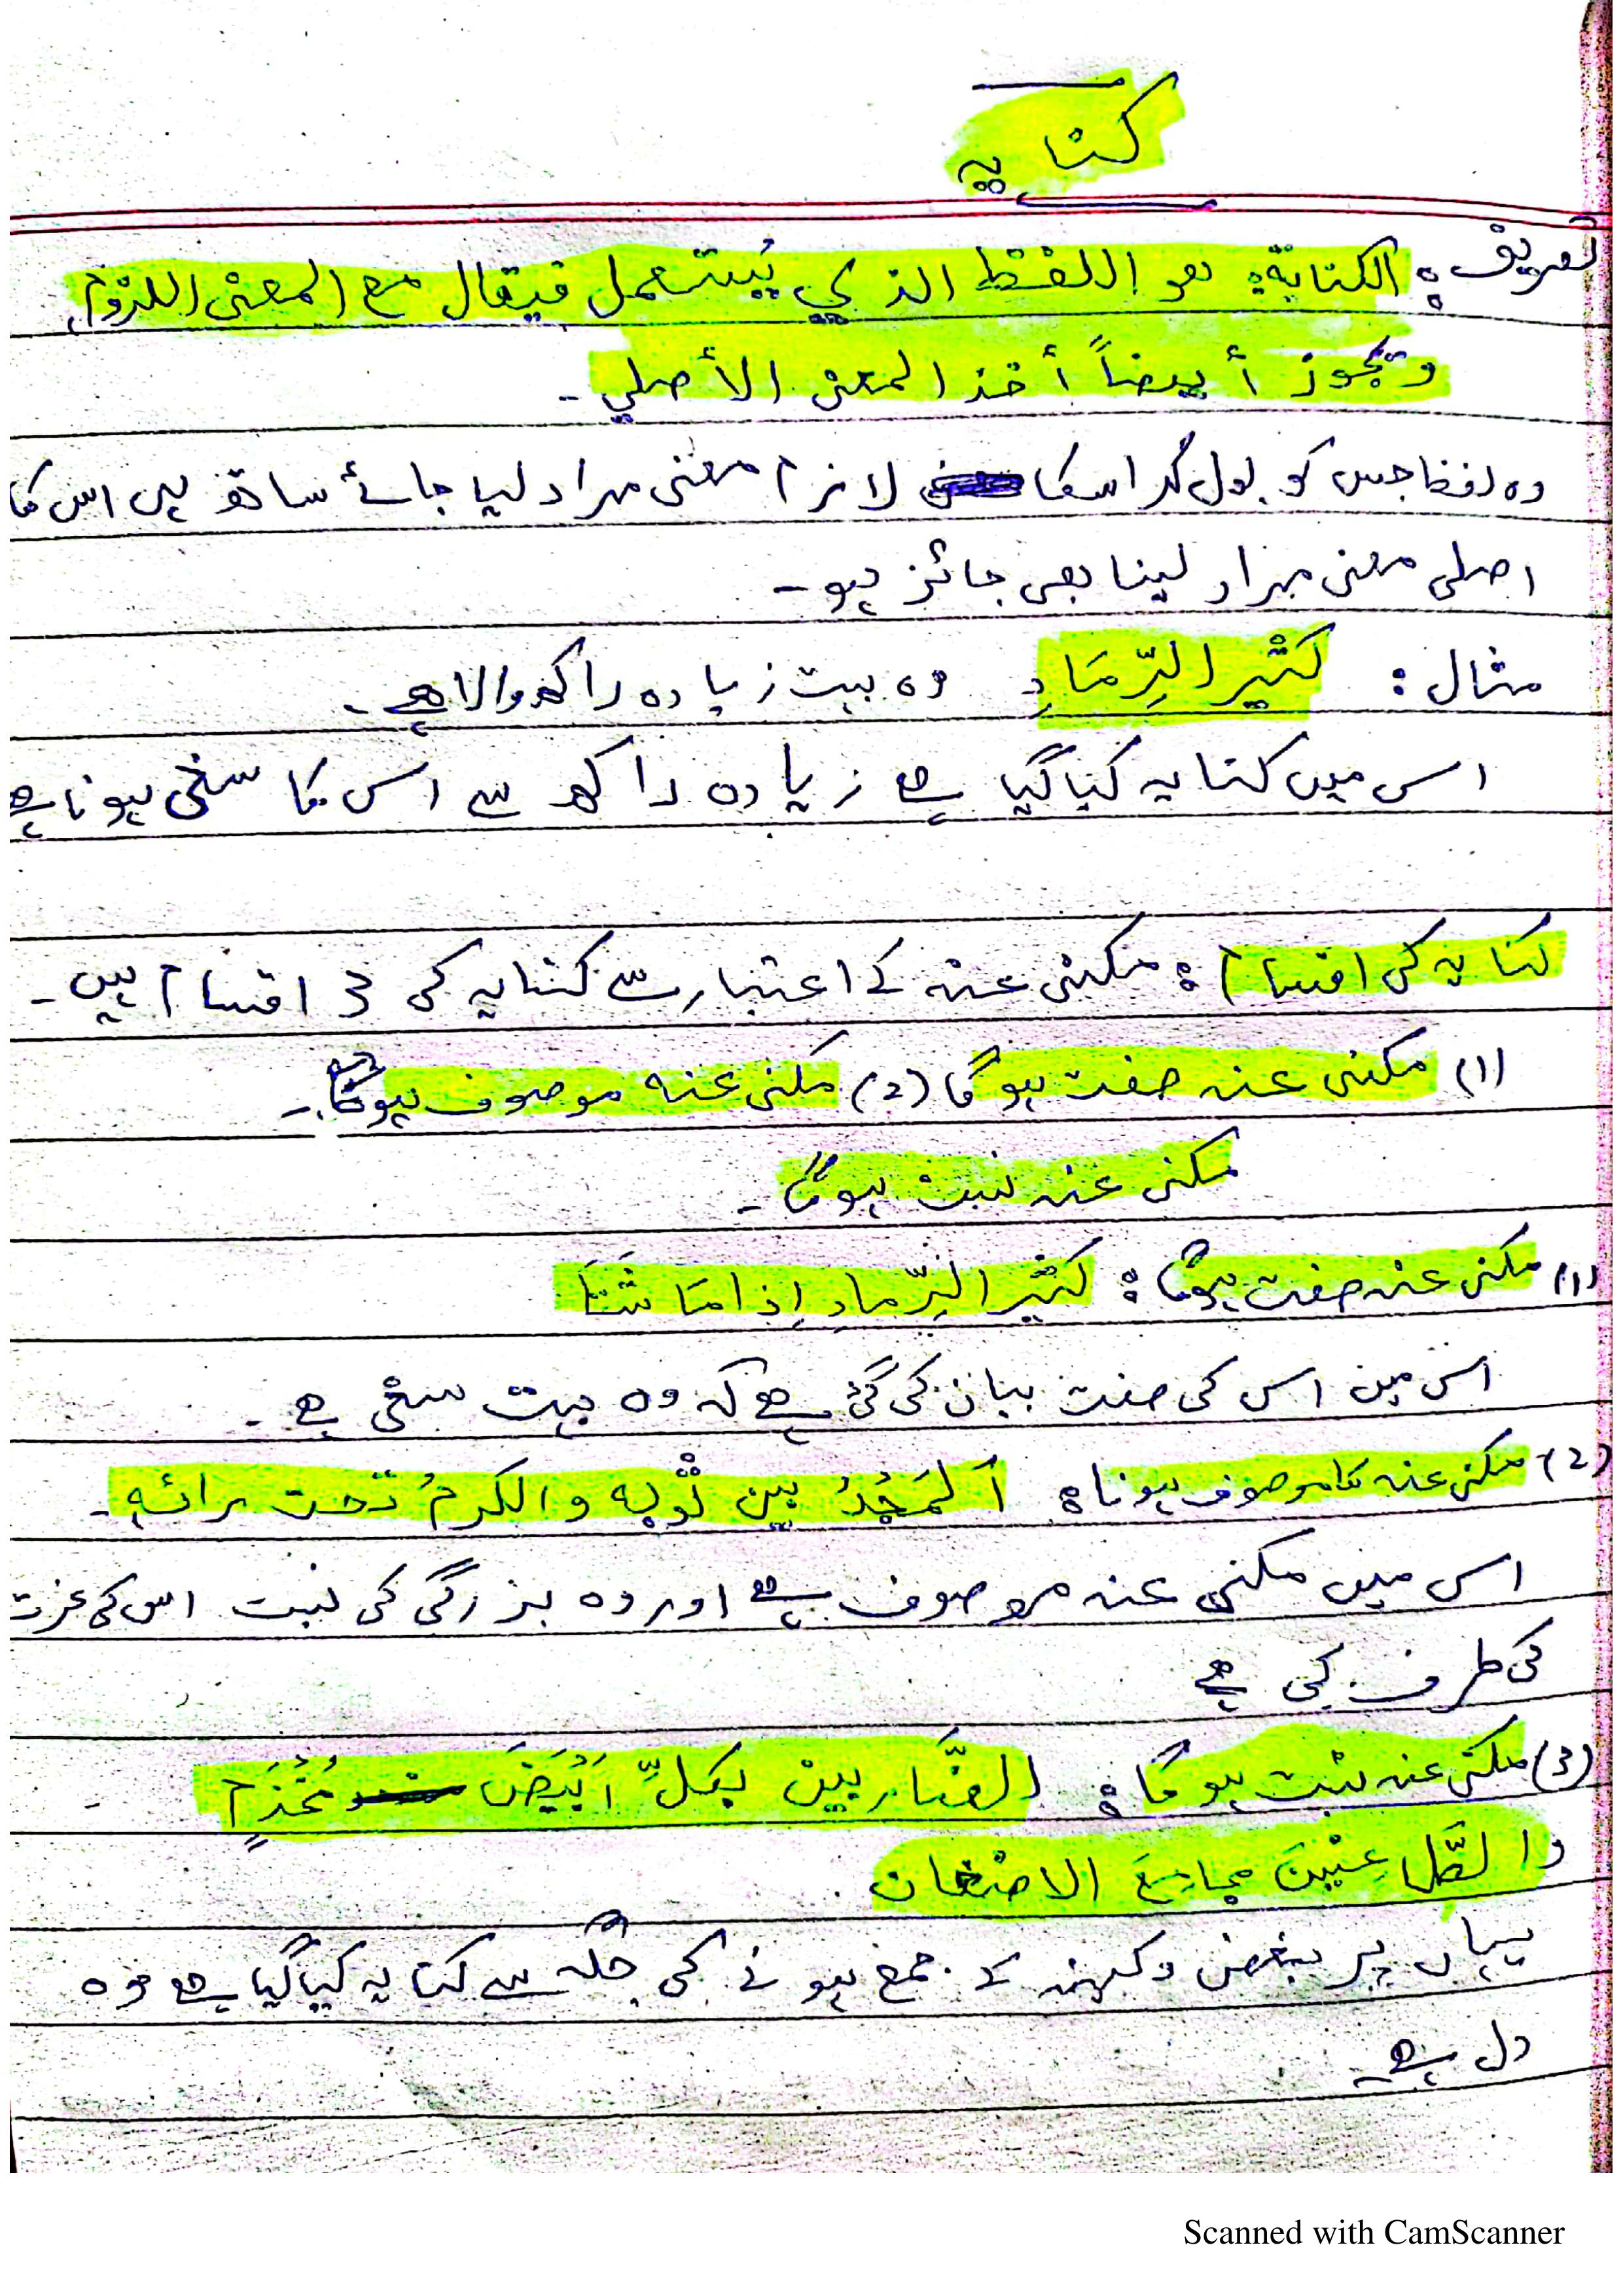 کنایہ
تعریف: الکنایة: هو اللفظ الذي يُستعمل فيقال مع المعنى اللزوم
وتجوز أيضاً أخذ المعنى الأصلي ۔
وہ لفظ جس کو بول کر اسکا لازم معنی مراد لیا جائے ساتھ ہی اس کا
اصلی معنی مراد لینا بھی جائز ہو ۔
مثال : كَثِير الرِّمَادِ وہ بہت زیادہ راکھ والا ہے ۔
اس میں کنایہ کیا گیا ہے زیادہ راکھ سے اس کا سخی ہونا ہے
کنایہ کی اقسام : مکنی عنہ کے اعتبار سے کنایہ کی 3 اقسام ہیں ۔
(1) مکنی عنہ صفت ہوگا (2) مکنی عنہ موصوف ہوگا ۔
مکنی عنہ نسبت ہوگا ۔
(1) مکنی عنہ صفت ہوگا : كَثِير الرِّمادِ إذا مَا شَتَا
اس میں اس کی صفت بیان کی گئی ہے کہ وہ بہت سخی ہے ۔
(2) مکنی عنہ کا موصوف ہونا : اَلمَجْدُ بين ثَوْبِه والكرمُ تحت ۔
اس میں مکنی عنہ موصوف ہے اور وہ بزرگی کی نسبت اس کی عزت
کی طرف کی ہے
(3) مکنی عنہ نسبت ہوگا : الضَّاربين بكلِّ اَبْيَضَ مُخْذَمٍ ۔
والطَّاعِنِينَ مجامِعَ الاضغان
یہاں پر بغض و کینہ کے جمع ہونے کی جگہ سے کنایہ کیا گیا ہے وہ
دل ہے ۔
Scanned with CamScanner